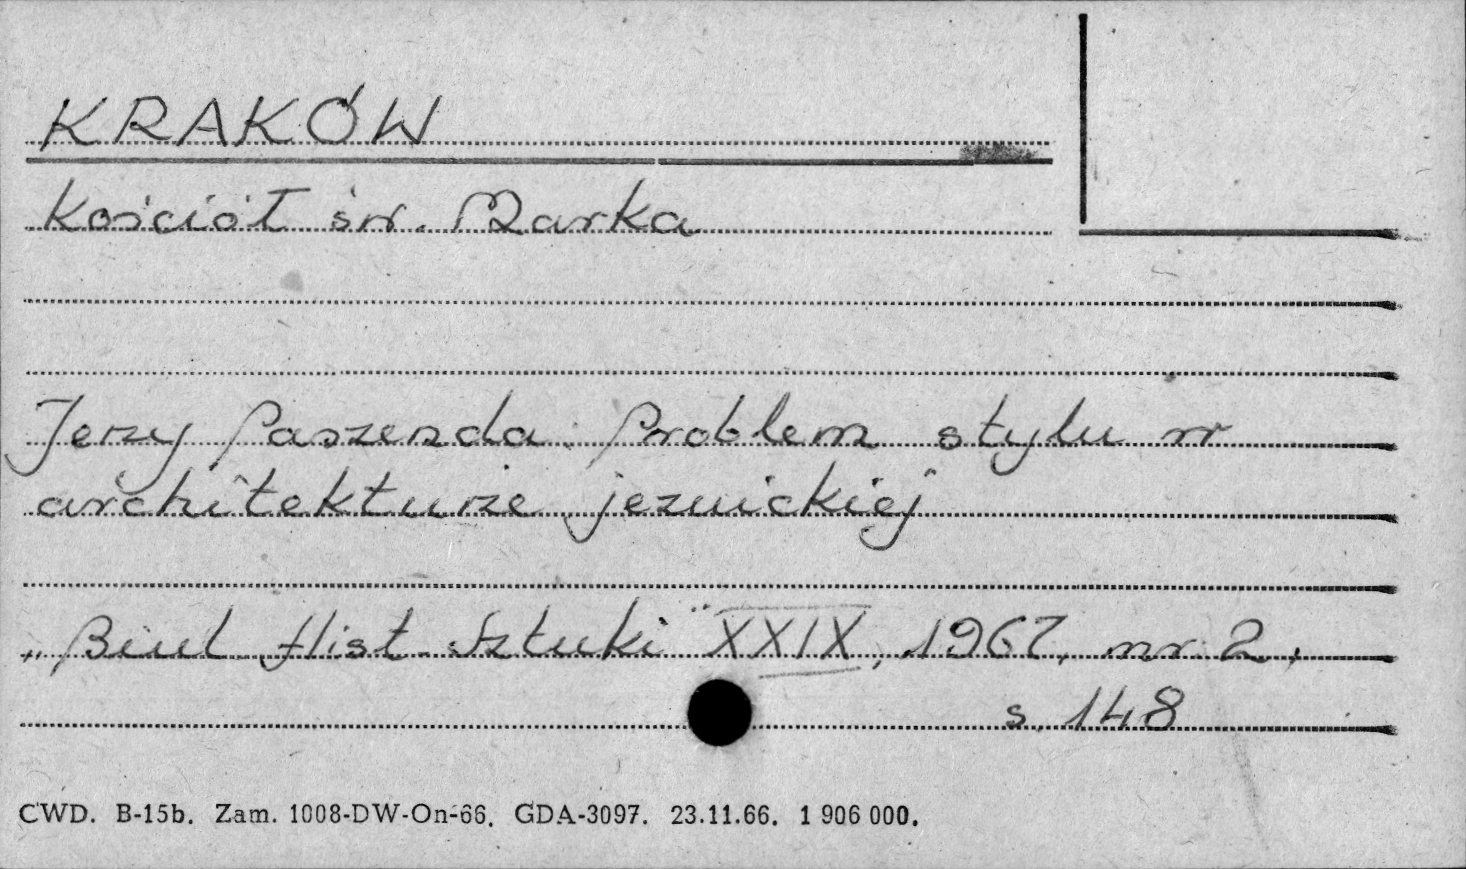 KRAKÓW
Kościół św. Marka
Jerzy Paszenda. Problem stylu w
architekturze jezuickiej
„Biul. Hist. Sztuki" XXIX, 1967, nr 2,
s. 148
CWD. B-15b. Zam. 1008-DW-On-66. GDA-3097. 23.11.66. 1 906 000.